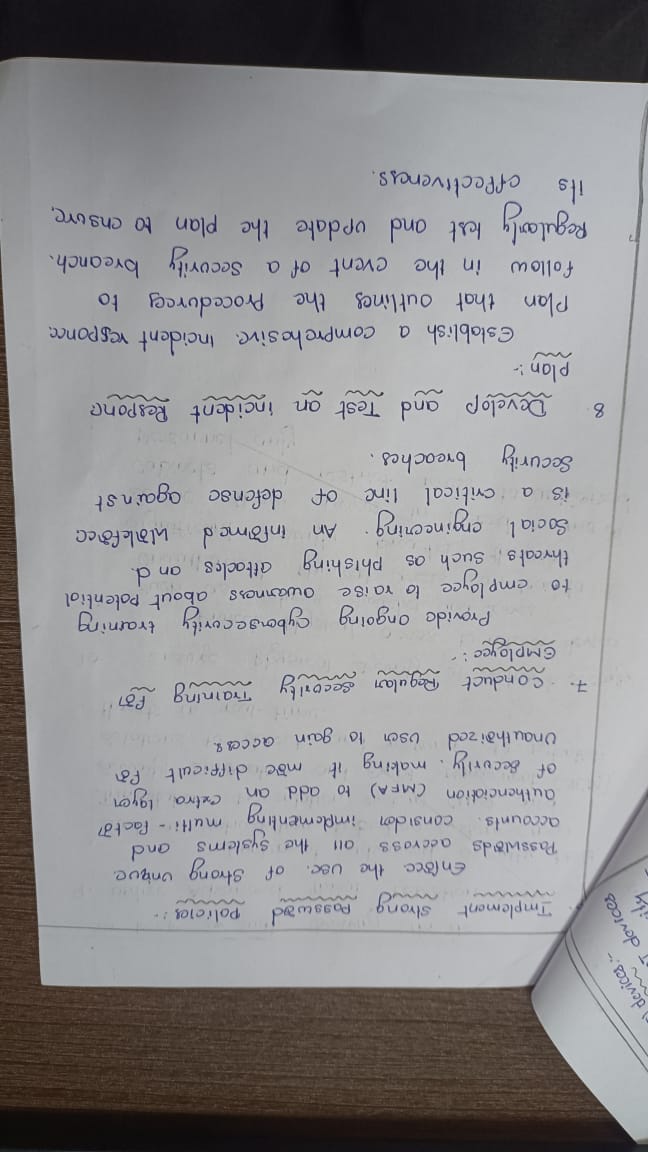 Implement strong Passwod policies :-
Enfoce the use of strong unique
Passwods accross all the systems and
accounts. consider implementing multi-factor
authenciation (MFA) to add an extra layer
of security. making it moe difficult for
Unauthoized user to gain access.
7. Conduct Regular security Training for
Employee :-
Provide ongoing Cybersecurity training
to employee to raise awarness about potential
threats, such as phishing attacks, an d
Social engineering. An infomed workfoce
is a critical line of defense against
Security breaches.
8. Develop and Test an incident Respone
plan :-
Establish a comprehesive incident responce
Plan that outlines the Procedures to
follow in the event of a security breanch.
Regularly test and update the plan to ensure
its effectiveness.
devices:-
devices